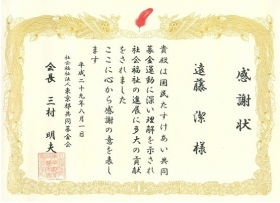 感謝状
遠藤 潔 様
貴殿は国民たすけあい共同
募金運動に深い理解を示され
社会福祉の進展に多大の貢献
をされました
ここに心から感謝の意を表し
ます
平成二十九年八月一日
社会福祉法人東京都共同募金会
会長 三村 明夫